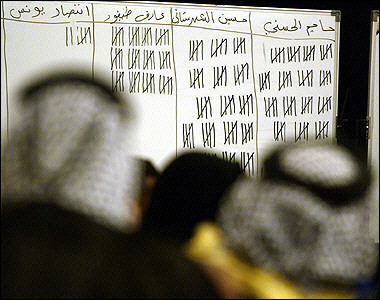 حاجم الحسني حسين الشهرستاني عارف طيفور انتصار يونس